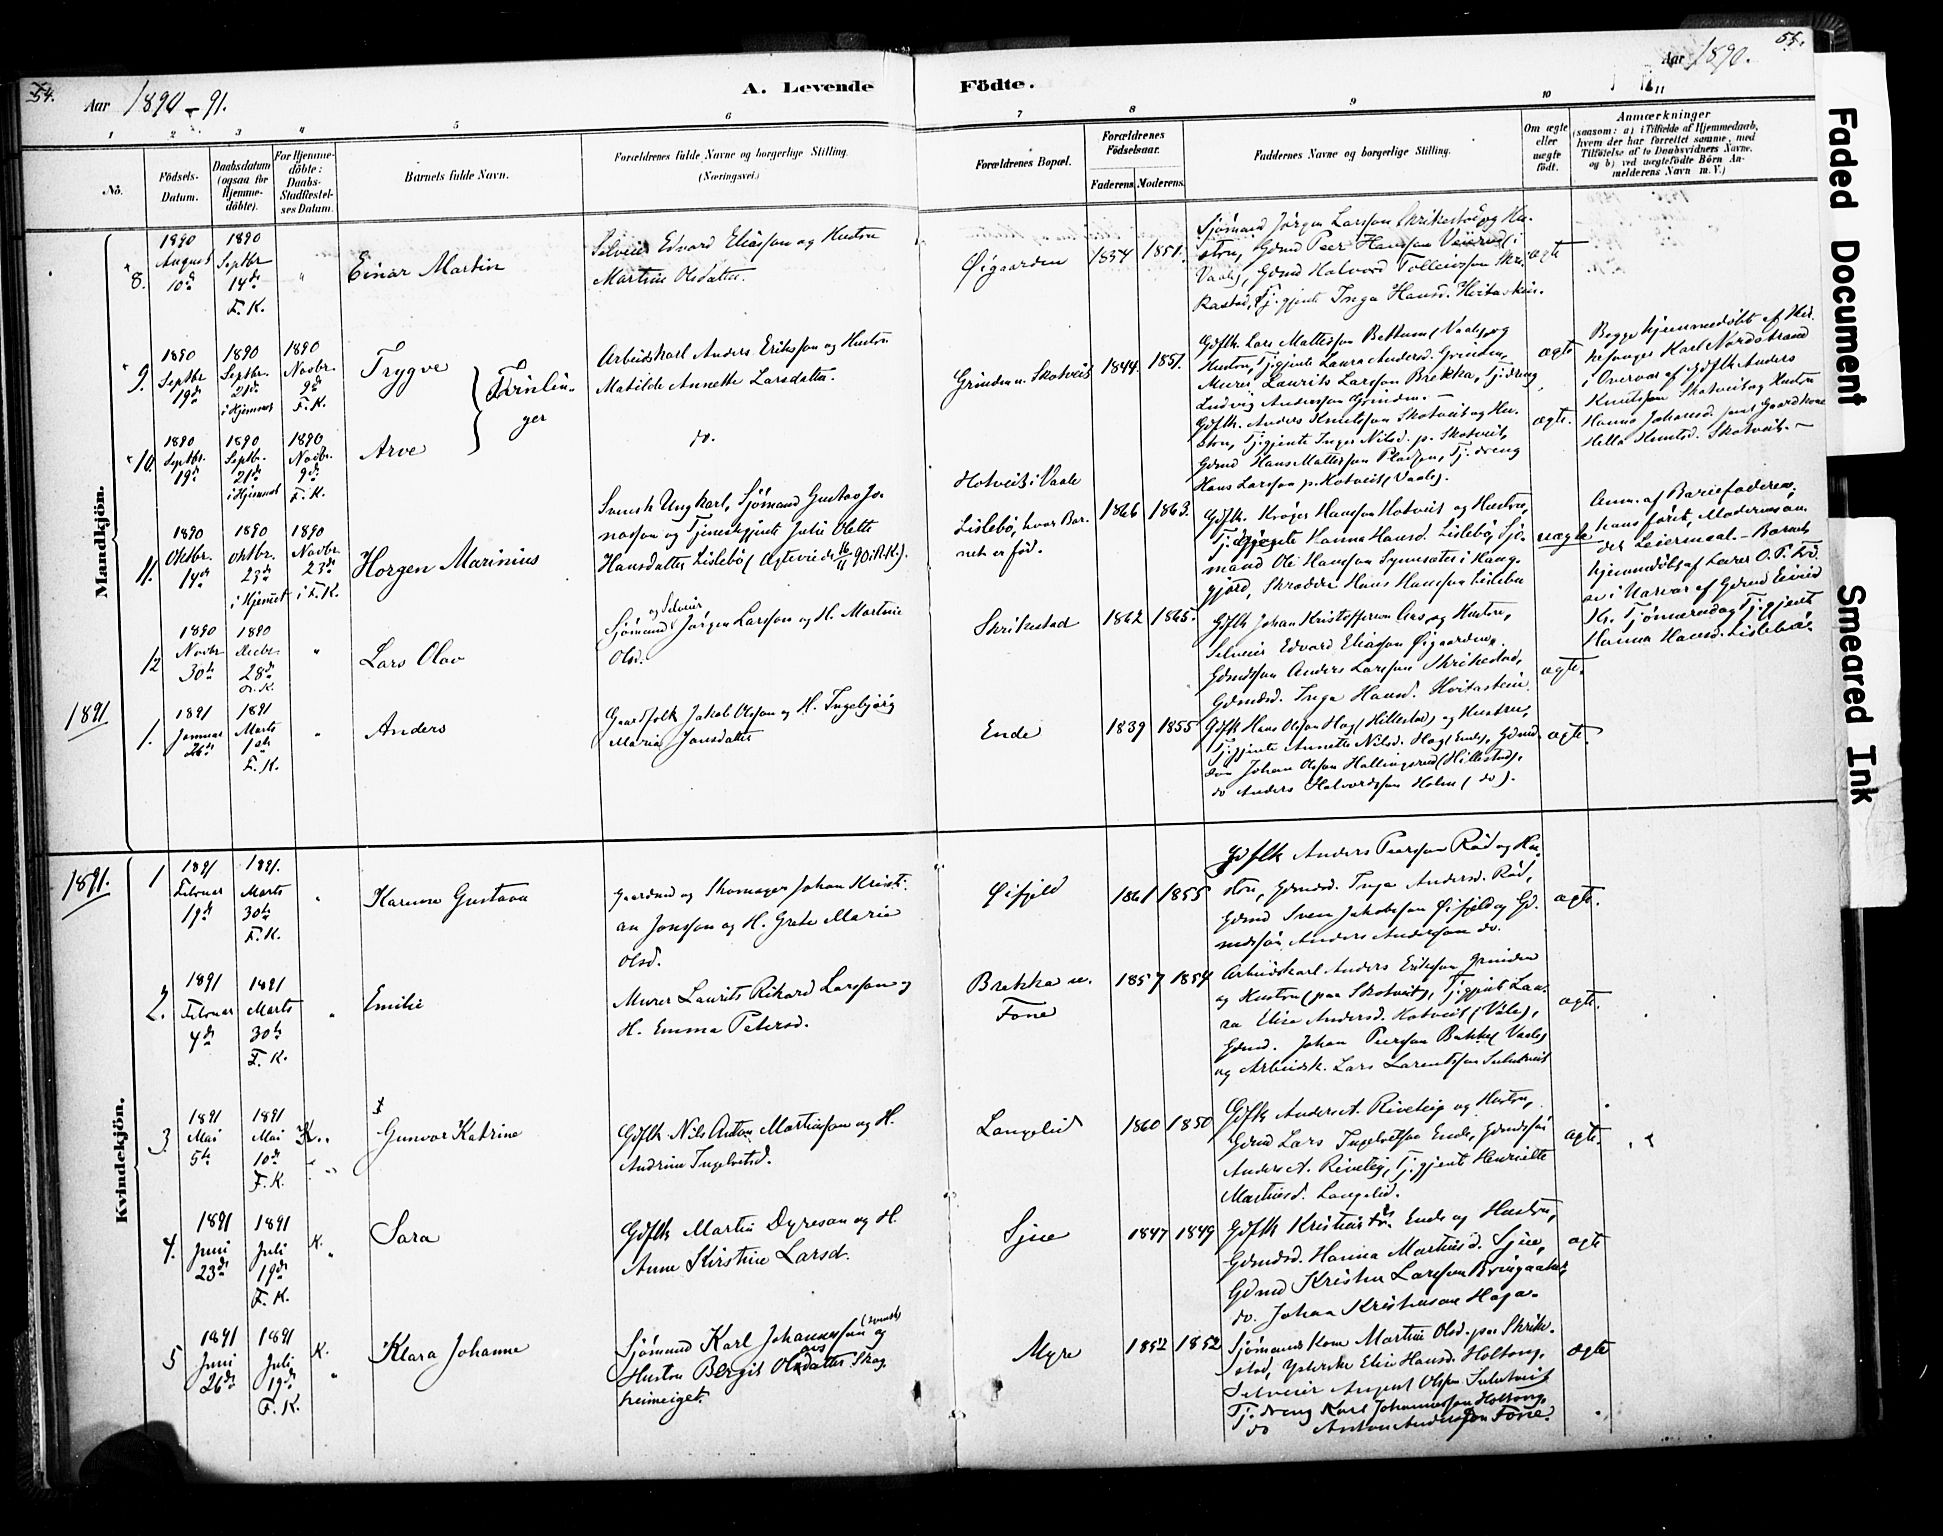 54.
Aar 1890-91.
A. Levende
Födte.
Aar 1890.
55.
1 2 3 4 5 6 7 8 9 10 11
No.
Födsels-
Datum.
Daabsdatum
(ogsaa for
Hjemme-
döbte).
For Hjemme-
döbte:
Daabs-
Stadfæstel-
ses Datum.
Barnets fulde Navn.
Forældrenes fulde Navne og borgerlige Stilling.
(Næringsvei.)
Forældrenes Bopæl.
Forældrenes
Födselsaar.
Faderens. Moderens.
Faddernes Navne og borgerlige Stilling.
Om ægte
eller
uægte
født.
Anmærkninger
(saasom: a) i Tilfælde af Hjemmedaab,
hvem der har forrettet samme, med
Tilföielse af to Daabsvidners Navne,
og b) ved uægtefödte Börn An-
melderens Navn m. V.)
Mandkjön.
8.
1890
August
10de
1890
Septbr
14de
F. K.
Einar Martin
Selveier Edvard Eliasson og Hustru
Martine Olsdatter.
Øigaarden
1854 1851.
Sjømand Jörgen Larsson Skrikestad og Hu-
stru, Gdmd Peer Hansson
Vaale, Gdmd Halvord
Rastad, Tj.gjente Inga Hansd. Hvitastein.
ægte
9.
1890
Septbr
19de
1890
Septbr.
21de
i Hjemmet
1890
Novbr.
9de
F. K.
Trygve
Tvinlin-
ger
Arbeidskarl Anders Eriksson og Hustru
Matilde Annette Larsdatter.
Grinden u. Skotveit
1844. 1851.
Gdflk. Lars Mattesson Bettum (Vaale) og
Hustru, Tj.gjente Laura Andersd. Grinden,
Murer Laurits Larsson Brekka, Tj.dreng
Ludvig Andersson Grinden.
ægte
Begge hjemmedöbt af Kir-
kesanger Karl Nordstrand
i Overvær af Gdflk Anders
Knutsson Skotveit og Hustru
Hanna Johansd. samt Gaardkone
Helle Skotveit.
10.
1890
Septbr.
19de
1890
Septbr.
21de
i Hjemmet
1890
Novbr.
9de
F. K.
Arve
do.
Gdflk. Anders Knutsson Skotveit og Hu-
stru, Tj.gjente Inger Nilsd. p. Skotveit,
Gdmd Hans Mattesson Pladsen, Tj. dreng
Hans Larsson p. Hotveit (Vaale).
ægte.
11.
1890
Oktbr.
14de
1890
Oktbr.
23de
i Hjemmet
1890
Novbr.
23de
i F. K.
Horgen Marinius
Svensk Ungkarl, Sjømand Gustav Jo-
nasson og Tjenestgjente Julie Olette
Hansdatter Lislebö (Ægteviede 16/11 90 i R.K.).
Hotveit i Vaale
Lislebö, hvor Bar-
net er fød.
1866 1863.
Gdflk. Hansson Hotveit og Hustru,
Tj.gjente Hanna Hansd. Lislebö, Sjö-
mand Ole Hansson i Haug-
gjord, Skrædder Hans Hansson Lislebö
uægte
Anm. af Barnefaderen,
hans förste, Moderens an-
det Leiermaal. Barnet
hjemmedöbt af Lærer O. P.
i Nærvær af Gdmd
K. og Tj.gjente
Hanna Hansd. Lislebö.
12
1890
Novbr
30te
1890
Decbr.
28de
F. K.
Lars Olav
og Selveier
Sjømand Jørgen Larsson og H. Martine
Olsd.
Skrikestad
1862 1865.
Gdflk Johan Kristofferson Aas og Hustru,
Selveier Edvard Eliasson Øigaarden,
Gdmdssön Anders Larsson Skrikestad,
Gdmdsd. Inga Hansd. Hvitastein
ægte.
1891
1.
1891
Januar
26de
1891
Marts
1ste
F. K.
Anders
Gaardfolk Jakob Olsson og H. Ingebjörg
Maria Jonsdatter
Ende
1839 1855
Gdflk Hans Olsson Hag (Hillestad) og Hustru,
Tj.gjente Annette Nilsd. Hag (Ende), Gdmd
Johan Olsson Hallingsrud (Hillestad),
do Anders Halvordsson Holm (do).
ægte.
1891.
Kvindekjön.
1
1891
Februar
19de
1891.
Marts
30te
F. K.
Karen Gustava
Gaardmd og Skomager Johan Kristi-
an Jonsson og H. Grete Marie
Olsd.
Øifjeld
1861 1855
Gdflk Anders Peersson Röd og Hu-
stru, Gdmdsd. Inga Andersd. Röd,
Gdmd Sven Jakobsson Øifjeld og Gd-
mdssön Anders Andersson do.
ægte.
2.
1891
Februar
4de
1891
Marts
30te
F. K.
Emilie
Murer Laurits Rikard Larsson og
H. Emma Petersd.
Brekka u.
Fone
1857 1854
Arbeidskarl Anders Eriksson Grinden
og Hustru (paa Skotveit), Tj.gjente Lau-
ra Elise Andersd. Hotveit (i Vale),
Gdmd. Johan Peersson Bakke (Vaale)
og Arbeidsk. Lars Larentsson
ægte.
3.
1891
Mai
5te
1891
Mai
10de
F. K.
K.
Gunvor Katrine
Gdflk Nils Anton Martinsson og H.
Andrine Ingebretsd.
Langelid
1860 1850
Gdflk Anders A. Riveteig og Hustru,
Gdmd Lars Ingebretsson Ende, Gdmdssön
Anders A. Riveteig, Tj.gjente Henriette
Martinsd. Langelid.
ægte.
4.
1891
Juni
23de
1891
Juli
19de
F. K.
K.
Sara
Gdflk Martin Dyreson og H.
Anne Kirstine Larsd.
Sjue
1847 1849
Gdflk Kristian Ende og Hustru,
Gdmdsd. Hanna Martinsd. Sjue,
Gdmd Kristen Larsson Bringaaker,
do. Johan Kristianson Haga.
ægte
5
1891
Juni
26de
1891
Juli
19de
F. K.
K.
Klara Johanne
Sjømand Karl Johannesson (svensk) og
Hustru Bergit Olsdatter Skog
Myre
1852 1852
Sjømands Kone Martine Olsd. paa Skrike-
stad, Elin Hansd. Holtong,
Selveier August Olsson
Tj. dreng Karl Johannesson Holtong,
do Anton Andersson Fone.
ægte
Faded Document
Smeared Ink